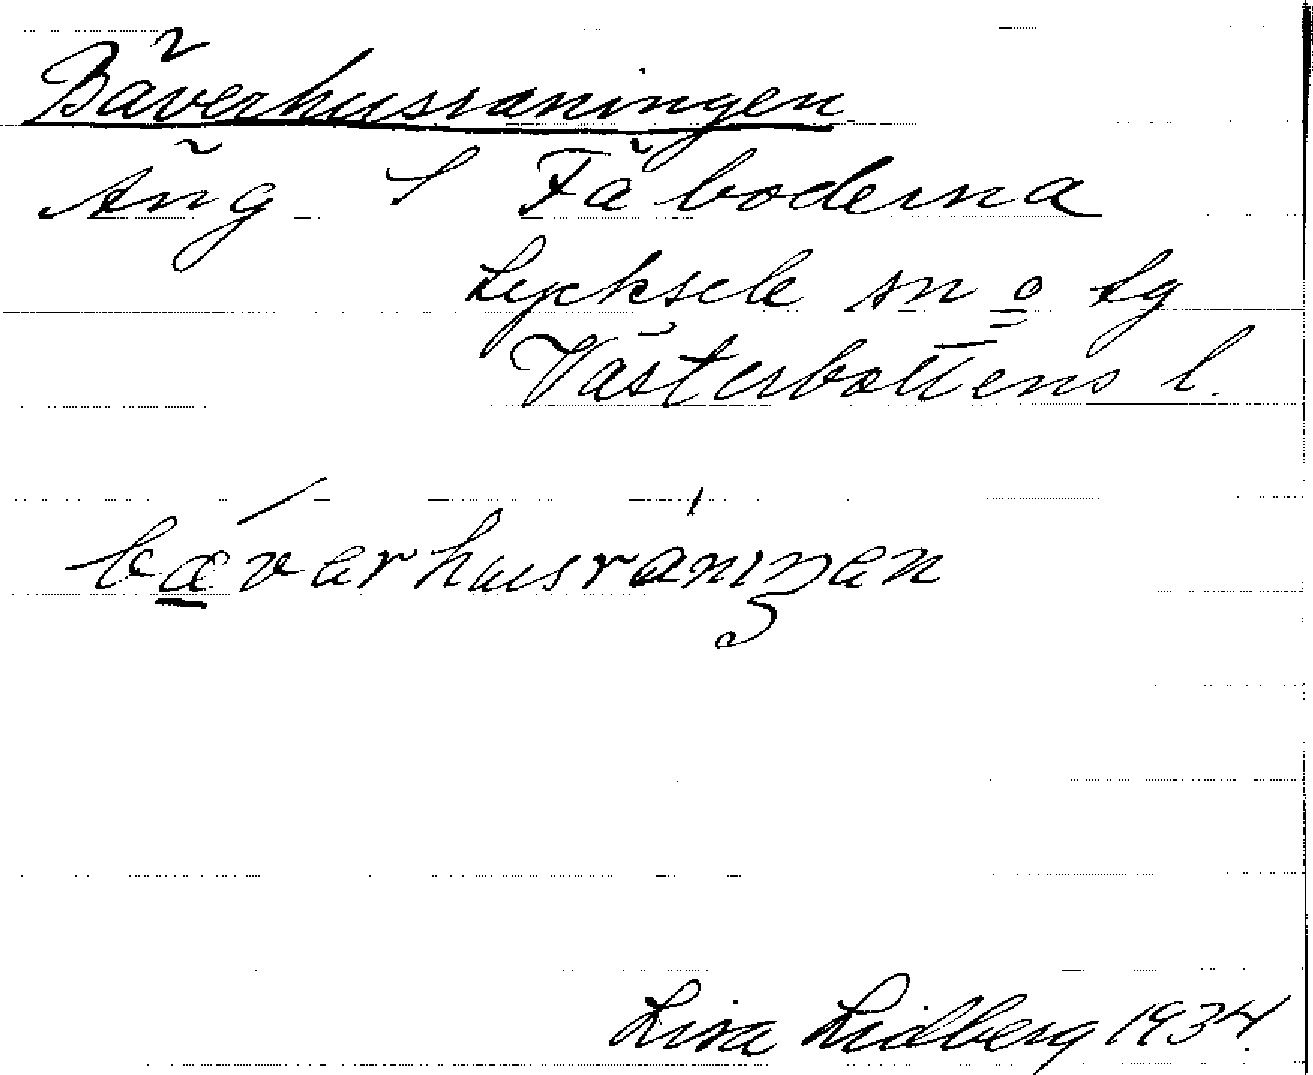 Bäverhusraningen
Äng i Fäboderna
Lycksele sn o lg
Västerbottens l.
bæ̲varhusraniŋən
Lisa Lidberg 1934.